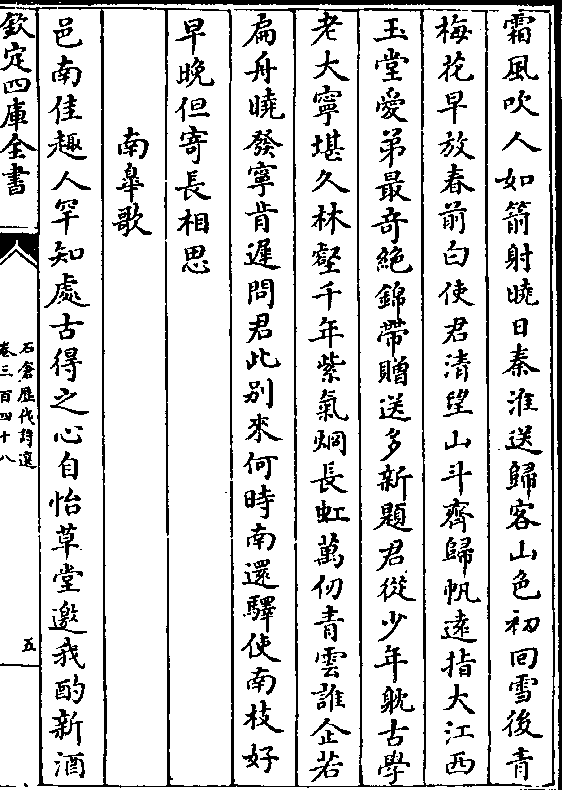 霜風吹人如箭射曉日秦淮送歸客山色初回雪後青
梅花早放春前白使君清望山斗齊歸帆遠指大江西
玉堂愛弟最奇絕錦帶贈送多新題君從少年躭古學
老大寧堪久林壑千年紫氣烱長虹萬仞青雲誰企若
扁舟曉發寧肯遲問君此别來何時南還驛使南枝好
早晚但寄長相思
南皋歌
邑南佳趣人罕知處古得之心自怡草堂邀我酌新酒
欽定四庫全書
石倉歷代詩選
卷三百四十八
五